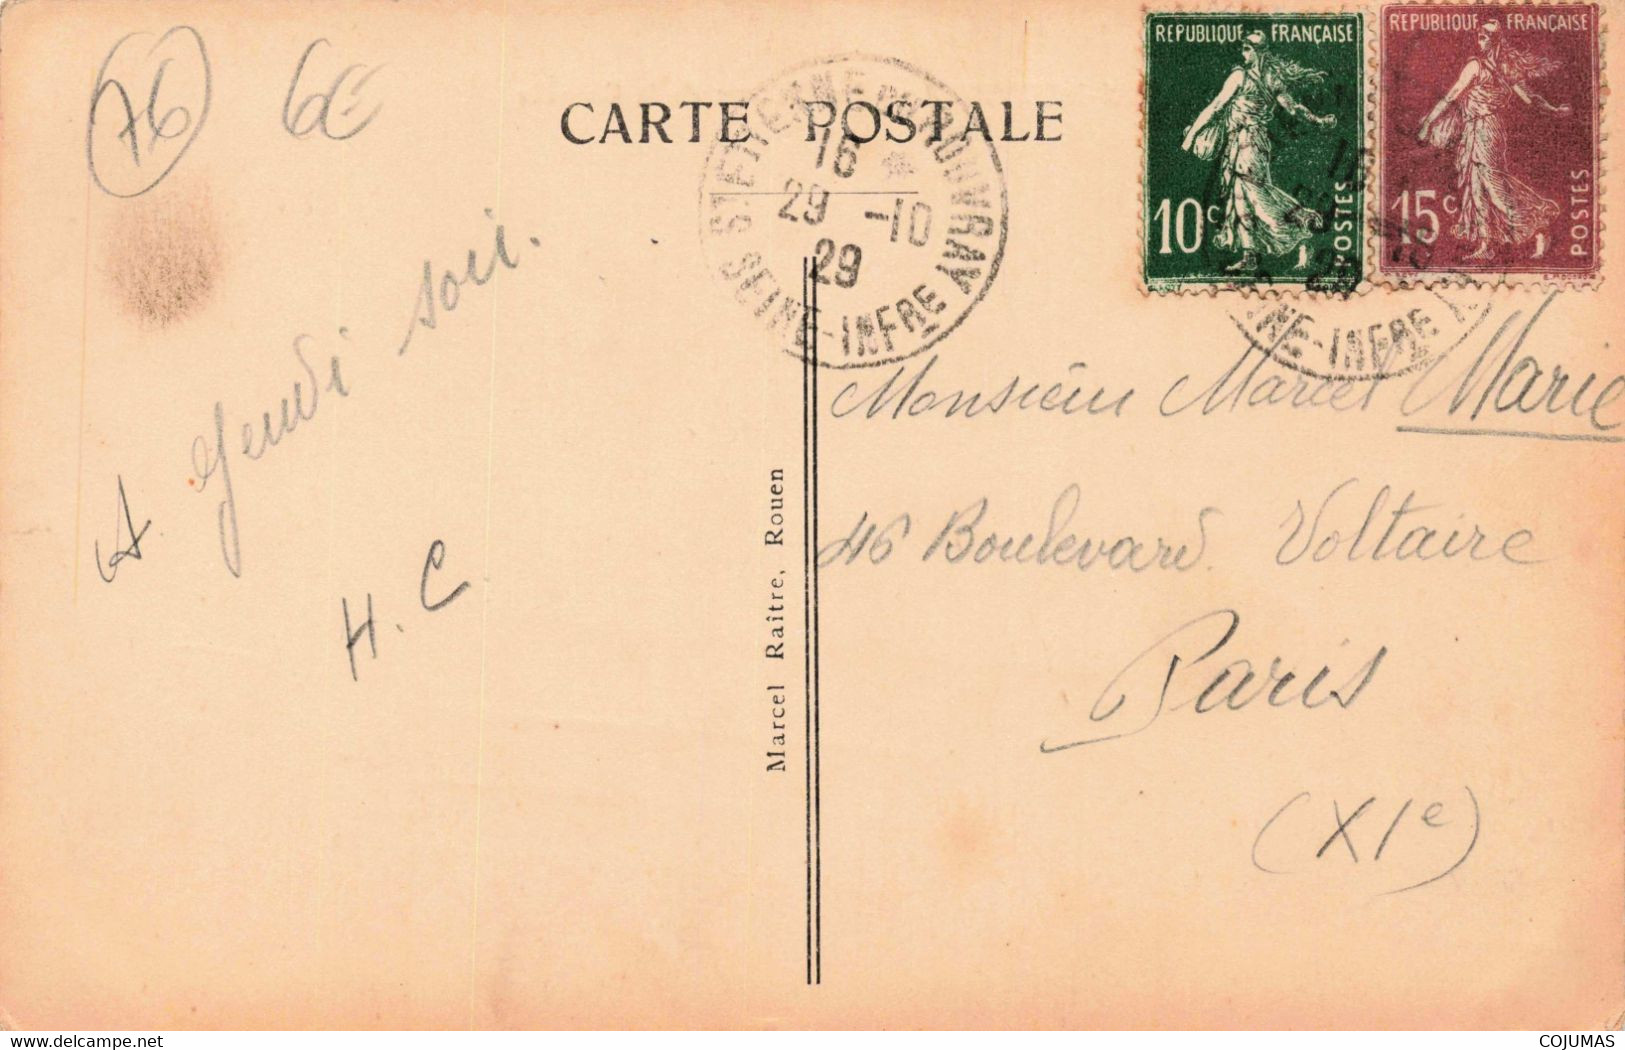 76
6€
CARTE POSTALE
ST ETIENNE DU ROUVRAY
16
29 -10
29
SEINE-INFRE
REPUBLIQUE FRANÇAISE
10c
POSTES
REPUBLIQUE FRANÇAISE
15c
POSTES
INE-INFRE
A Jeudi soir.
H. C
Marcel Raître, Rouen
Monsieur Marcel Marie
46 Boulevard Voltaire
Paris
(XIe)
COJUMAS